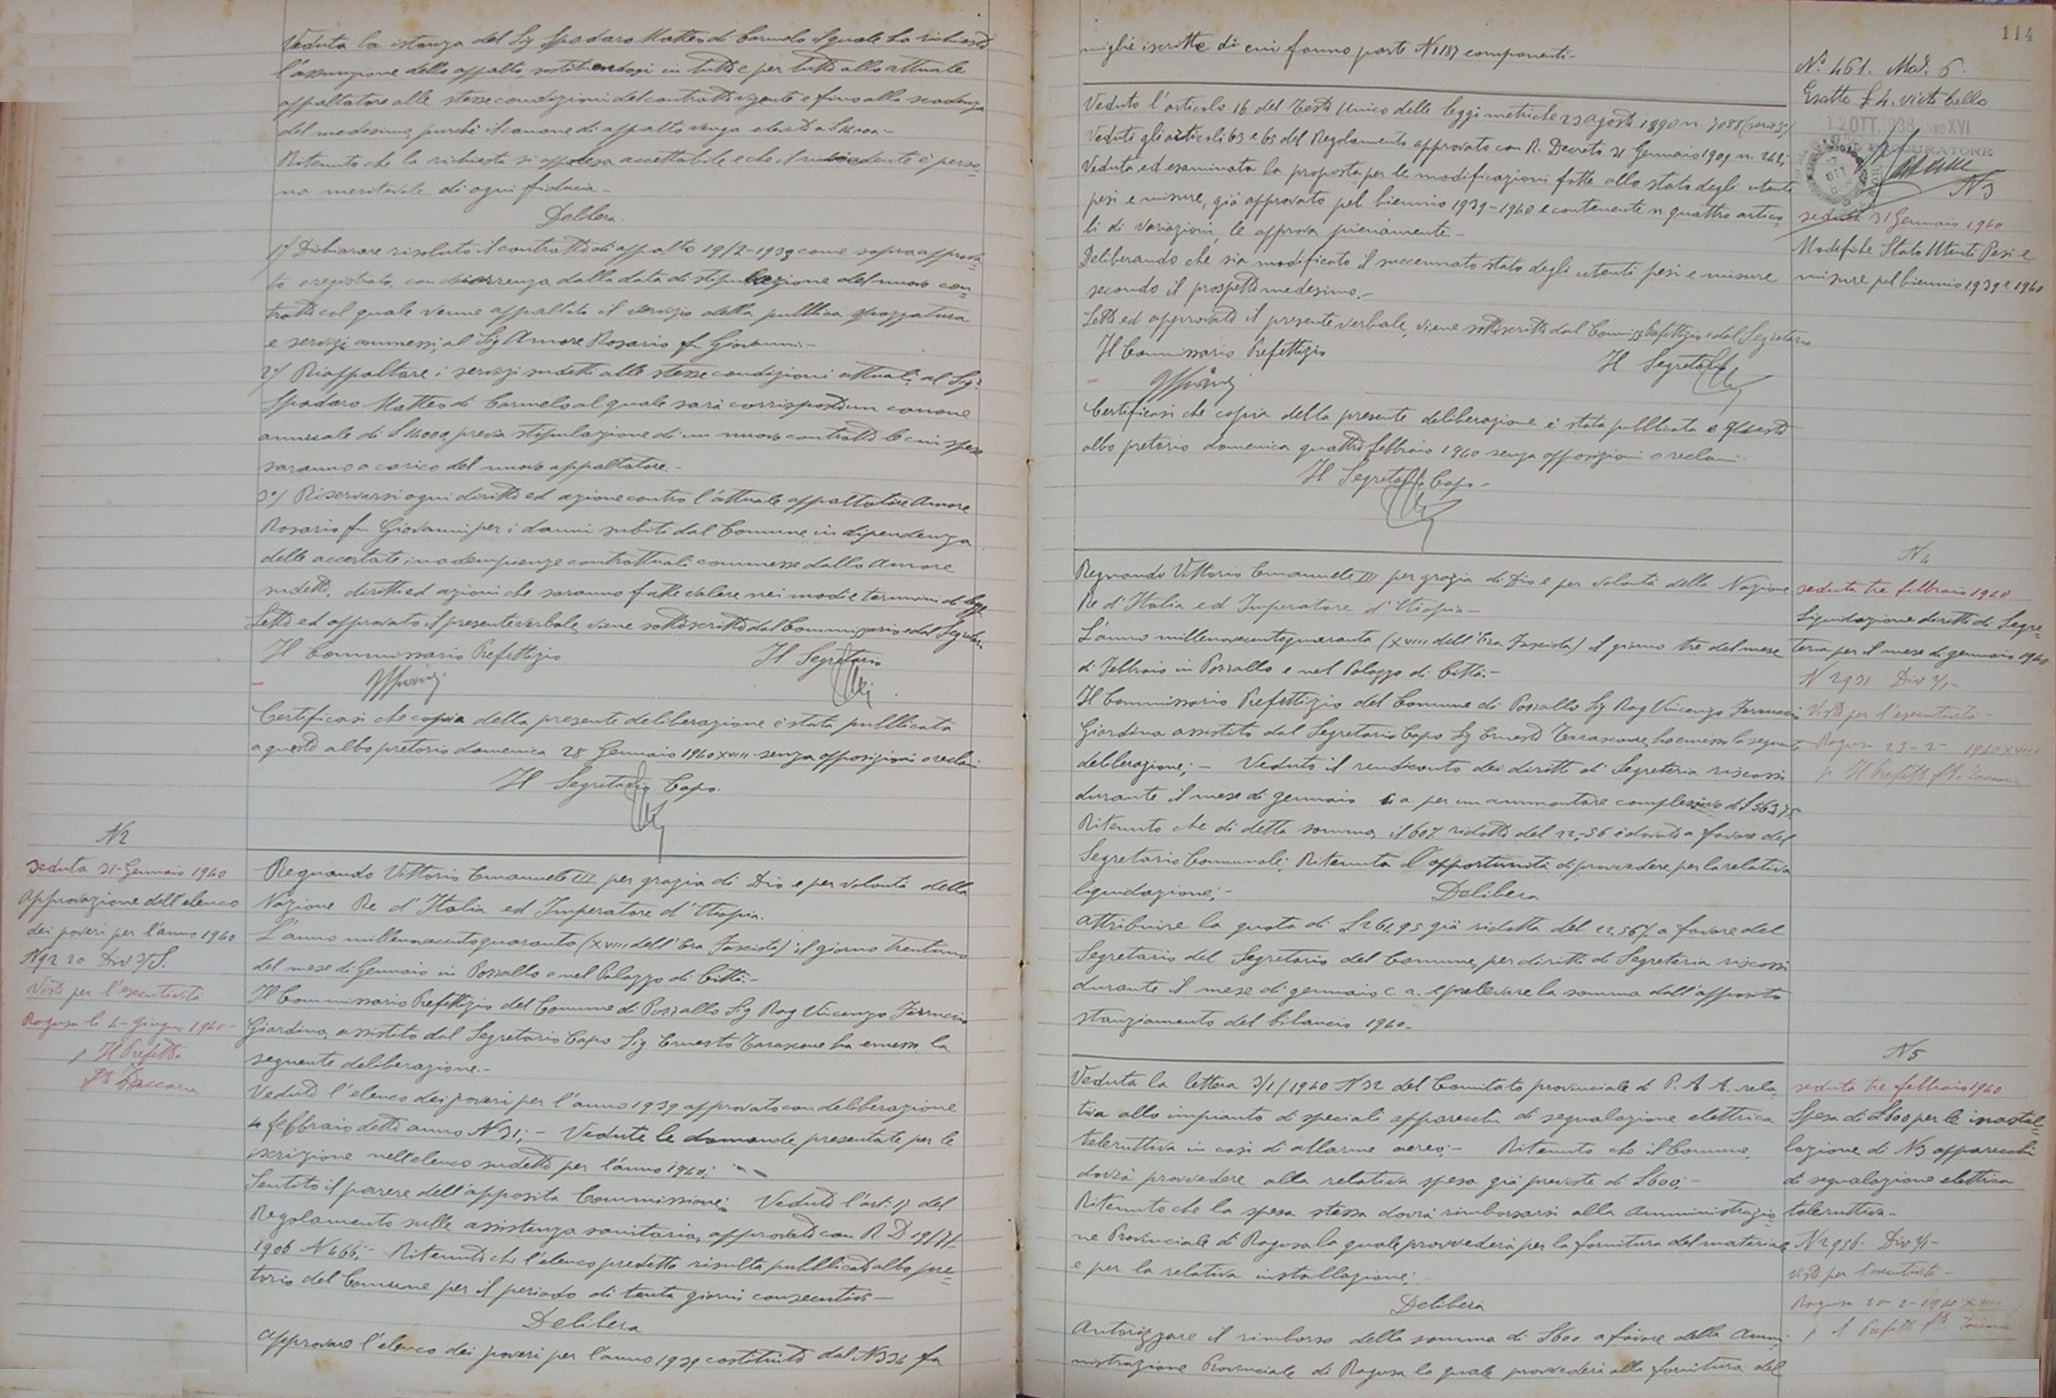 Veduta la istanza del Sig Spadaro Matteo di Carmelo il quale ha richiesto
l'assunzione dello appalto sostituendosi in tutto e per tutto allo attuale
appaltatore alle stesse condizioni del contratto vigente e fino alla scadenza
del medesimo, purchè il canone di appalto venga elevato a
Ritenuto che la richiesta si appalesa accettabile e che il richiedente è perso-
na meritevole di ogni fiducia -
Delibera
1°/ Dichiarare risoluto il contratto di appalto 19/2-1939 come sopra approva-
to e registrato, con decorrenza dalla data di stipulazione del nuovo con-
tratto col quale venne appaltato il servizio della pubblica spazzatura
e servizi ammessi, al Sig Amore Rosario fu Giovanni -
2°/ Riappaltare i servizi sudetti alle stesse condizioni attuali, al Sig.
Spadaro Matteo di Carmelo al quale sarà corrisposto un canone
annuale di £ 14000, previa stipulazione di un nuovo contratto le cui spese
saranno a carico del nuovo appaltatore. -
3°/ Riservarsi ogni diritto ed azione contro l'attuale appaltatore Amore
Rosario fu Giovanni per i danni subiti dal Comune in dipendenza
delle accertate inadempienze contrattuali commesse dallo Amore
sudetto, diritti ed azioni che saranno fatte valere nei modi e termini di legge
Letto ed approvato il presente verbale, viene sottoscritto dal Commissario e dal Segretario
Il Commissario Prefettizio Il Segretario
Certificasi che copia della presente deliberazione è stata pubblicata
a questo albo pretorio domenica 28 Gennaio 1940 XVIII senza opposizioni o reclami
Il Segretario Capo.
N 2
seduta 31 Gennaio 1940
Approvazione dell'elenco
dei poveri per l'anno 1940
Visto per l'esecutività
Ragusa li 4- Giugno 1940 -
p Il Prefetto
Regnando Vittorio Emanuele III per grazia di Dio e per volontà della
Nazione Re d'Italia ed Imperatore d'Etiopia.
L'anno millenovecentoquaranta (XVIII dell'Era Fascista) il giorno trentuno
del mese di Gennaio in Pozzallo e nel Palazzo di Città. -
Il Commissario Prefettizio del Comune di Pozzallo Sig Rag Vincenzo Ferruccio
Giardina, assistito dal Segretario Capo Sig. Ernesto Tarascone ha emesso la
seguente deliberazione. -
Veduto l'elenco dei poveri per l'anno 1939 approvato con deliberazione
4 febbraio detto anno N 31; - Vedute le domande presentate per le
iscrizione nell'elenco sudetto per l'anno 1940;
Sentito il parere dell'apposita Commissione; Veduto l'art: 17 del
Regolamento sulle assistenza sanitaria, approvato con R D 19/7/
1906 N 466; - Ritenuto che l'elenco predetto risulta pubblicato albo pre-
torio del Comune per il periodo di trenta giorni consecutivi -
Delibera
Approvare l'elenco dei poveri per l'anno 1939 costituito dal N 336 fa
114
miglie iscritte di cui fanno parte N 1187 componenti -
Veduto l'articolo 16 del Testo Unico delle leggi metriche 23 agosto 1890 n. 7088 (serie 3ª)
Veduto gli articoli 63 e 65 del Regolamento approvato con R. Decreto 31 Gennaio 1909 n. 242;
Veduta ed esaminata la proposta per le modificazioni fatte allo stato degli utenti
pesi e misure, già approvato pel biennio 1939-1940 e contenente n. quattro artico-
li di variazioni, le approva pienamente. -
Deliberando che sia modificato il succennato stato degli utenti pesi e misure
secondo il prospetto medesimo. -
Letto ed approvato il presente verbale, viene sottoscritto dal Commiss. Prefettizio e dal Segretario
Il Commissario Prefettizio Il Segretario
Certificasi che copia della presente deliberazione è stata pubblicata a questo
albo pretorio domenica quattro febbraio 1940 senza opposizioni o reclami.
Il Segretario Capo -
N° 461. Mod. 6.
Esatte £ 4.
12 OTT. 1938 ANNO XVI
PROCURATORE
N 3
seduta 31 Gennaio 1940
Modifiche Stato Utenti Pesi e
misure pel biennio 1939 e 1940
Regnando Vittorio Emanuele III per grazia di Dio e per volontà della Nazione
Re d'Italia ed Imperatore d'Etiopia -
L'anno millenovecentoquaranta (XVIII dell'Era Fascista) il giorno tre del mese
di Febbraio in Pozzallo e nel Palazzo di Città. -
Il Commissario Prefettizio del Comune di Pozzallo Sig Rag Vincenzo Ferruccio
Giardina assistito dal Segretario Capo Sig Ernesto Tarascone, ha emesso la seguente
deliberazione; - Veduto il rendiconto dei diritti di Segreteria riscossi
durante il mese di gennaio c. a per un ammontare complessivo di £ 563,75
Ritenuto che di detta somma, il 60% ridotto del 22,56 è dovuto a favore del
Segretario Comunale; Ritenuta l'opportunità di provvedere per la relativa
liquidazione; -
Delibera
attribuire la quota di £ 261,95 già ridotta del 22,56% a favore del
Segretario del Segretario del Comune, per diritti di Segreteria riscossi
durante il mese di gennaio c. a. e prelevare la somma dall'apposito
stanziamento del bilancio 1940.
N 4
seduta tre febbraio 1940
Liquidazione diritti di Segre-
teria per il mese di gennaio 1940
N 2931 Div 2/1 -
Visto per l'esecutività -
Ragusa 23-2- 1940 XVIII
p Il Prefetto
Veduta la lettera 3/1/1940 N 32 del Comitato provinciale di P. A A. rela-
tiva allo impianto di speciali apparecchi di segnalazione elettrica
teleruttiva in casi di allarme aereo; - Ritenuto che il Comune,
dovrà provvedere alla relativa spesa già previste di £ 600; -
Ritenuto che la spesa stessa dovrà rimborsarsi alla Amministrazio-
ne Provinciale di Ragusa la quale provvederà per la fornitura del materiale
e per la relativa installazione;
Delibera
Autorizzare il rimborso della somma di £ 600 a favore della Ammi-
nistrazione Provinciale di Ragusa la quale provvederà alla fornitura del
N 5
seduta tre febbraio 1940
Spesa di £ 600 per le instal-
lazione di N 3 apparecchi
di segnalazione elettrica
teleruttiva -
N 2956 - Div 2/1 -
visto per l'esecutività -
Ragusa 20-2-1940 XVIII
p Il Prefetto